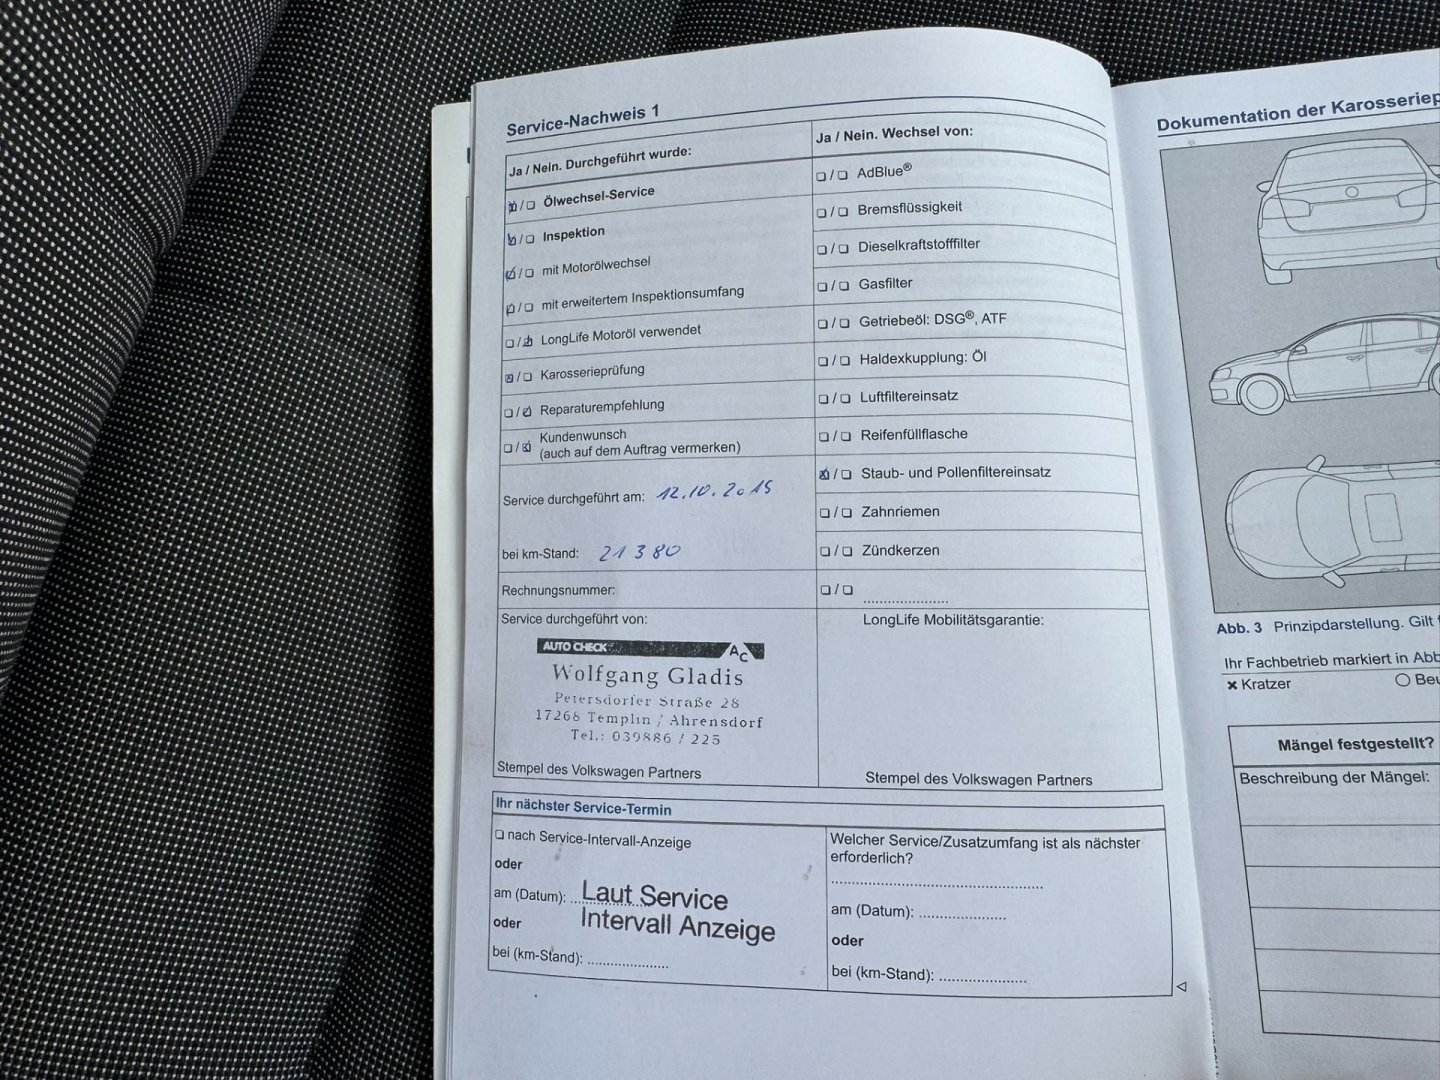 Service-Nachweis 1
Ja / Nein. Durchgeführt wurde:
Ölwechsel-Service
Inspektion
mit Motorölwechsel
mit erweitertem Inspektionsumfang
LongLife Motoröl verwendet
Karosserieprüfung
Reparaturempfehlung
Kundenwunsch
(auch auf dem Auftrag vermerken)
Service durchgeführt am: 12.10.2015
bei km-Stand: 21380
Rechnungsnummer:
Service durchgeführt von:
AUTO CHECK AC
Wolfgang Gladis
Petersdorfer Straße 28
17268 Templin / Ahrensdorf
Tel.: 039886 / 225
Stempel des Volkswagen Partners
Ja / Nein. Wechsel von:
AdBlue®
Bremsflüssigkeit
Dieselkraftstofffilter
Gasfilter
Getriebeöl: DSG®, ATF
Haldexkupplung: Öl
Luftfiltereinsatz
Reifenfüllflasche
Staub- und Pollenfiltereinsatz
Zahnriemen
Zündkerzen
LongLife Mobilitätsgarantie:
Stempel des Volkswagen Partners
Ihr nächster Service-Termin
nach Service-Intervall-Anzeige
oder
am (Datum): Laut Service
oder Intervall Anzeige
bei (km-Stand):
Welcher Service/Zusatzumfang ist als nächster
erforderlich?
am (Datum):
oder
bei (km-Stand):
Dokumentation der
Abb. 3 Prinzipdarstellung. Gilt
Ihr Fachbetrieb markiert in Abb
Kratzer
Mängel festgestellt?
Beschreibung der Mängel: